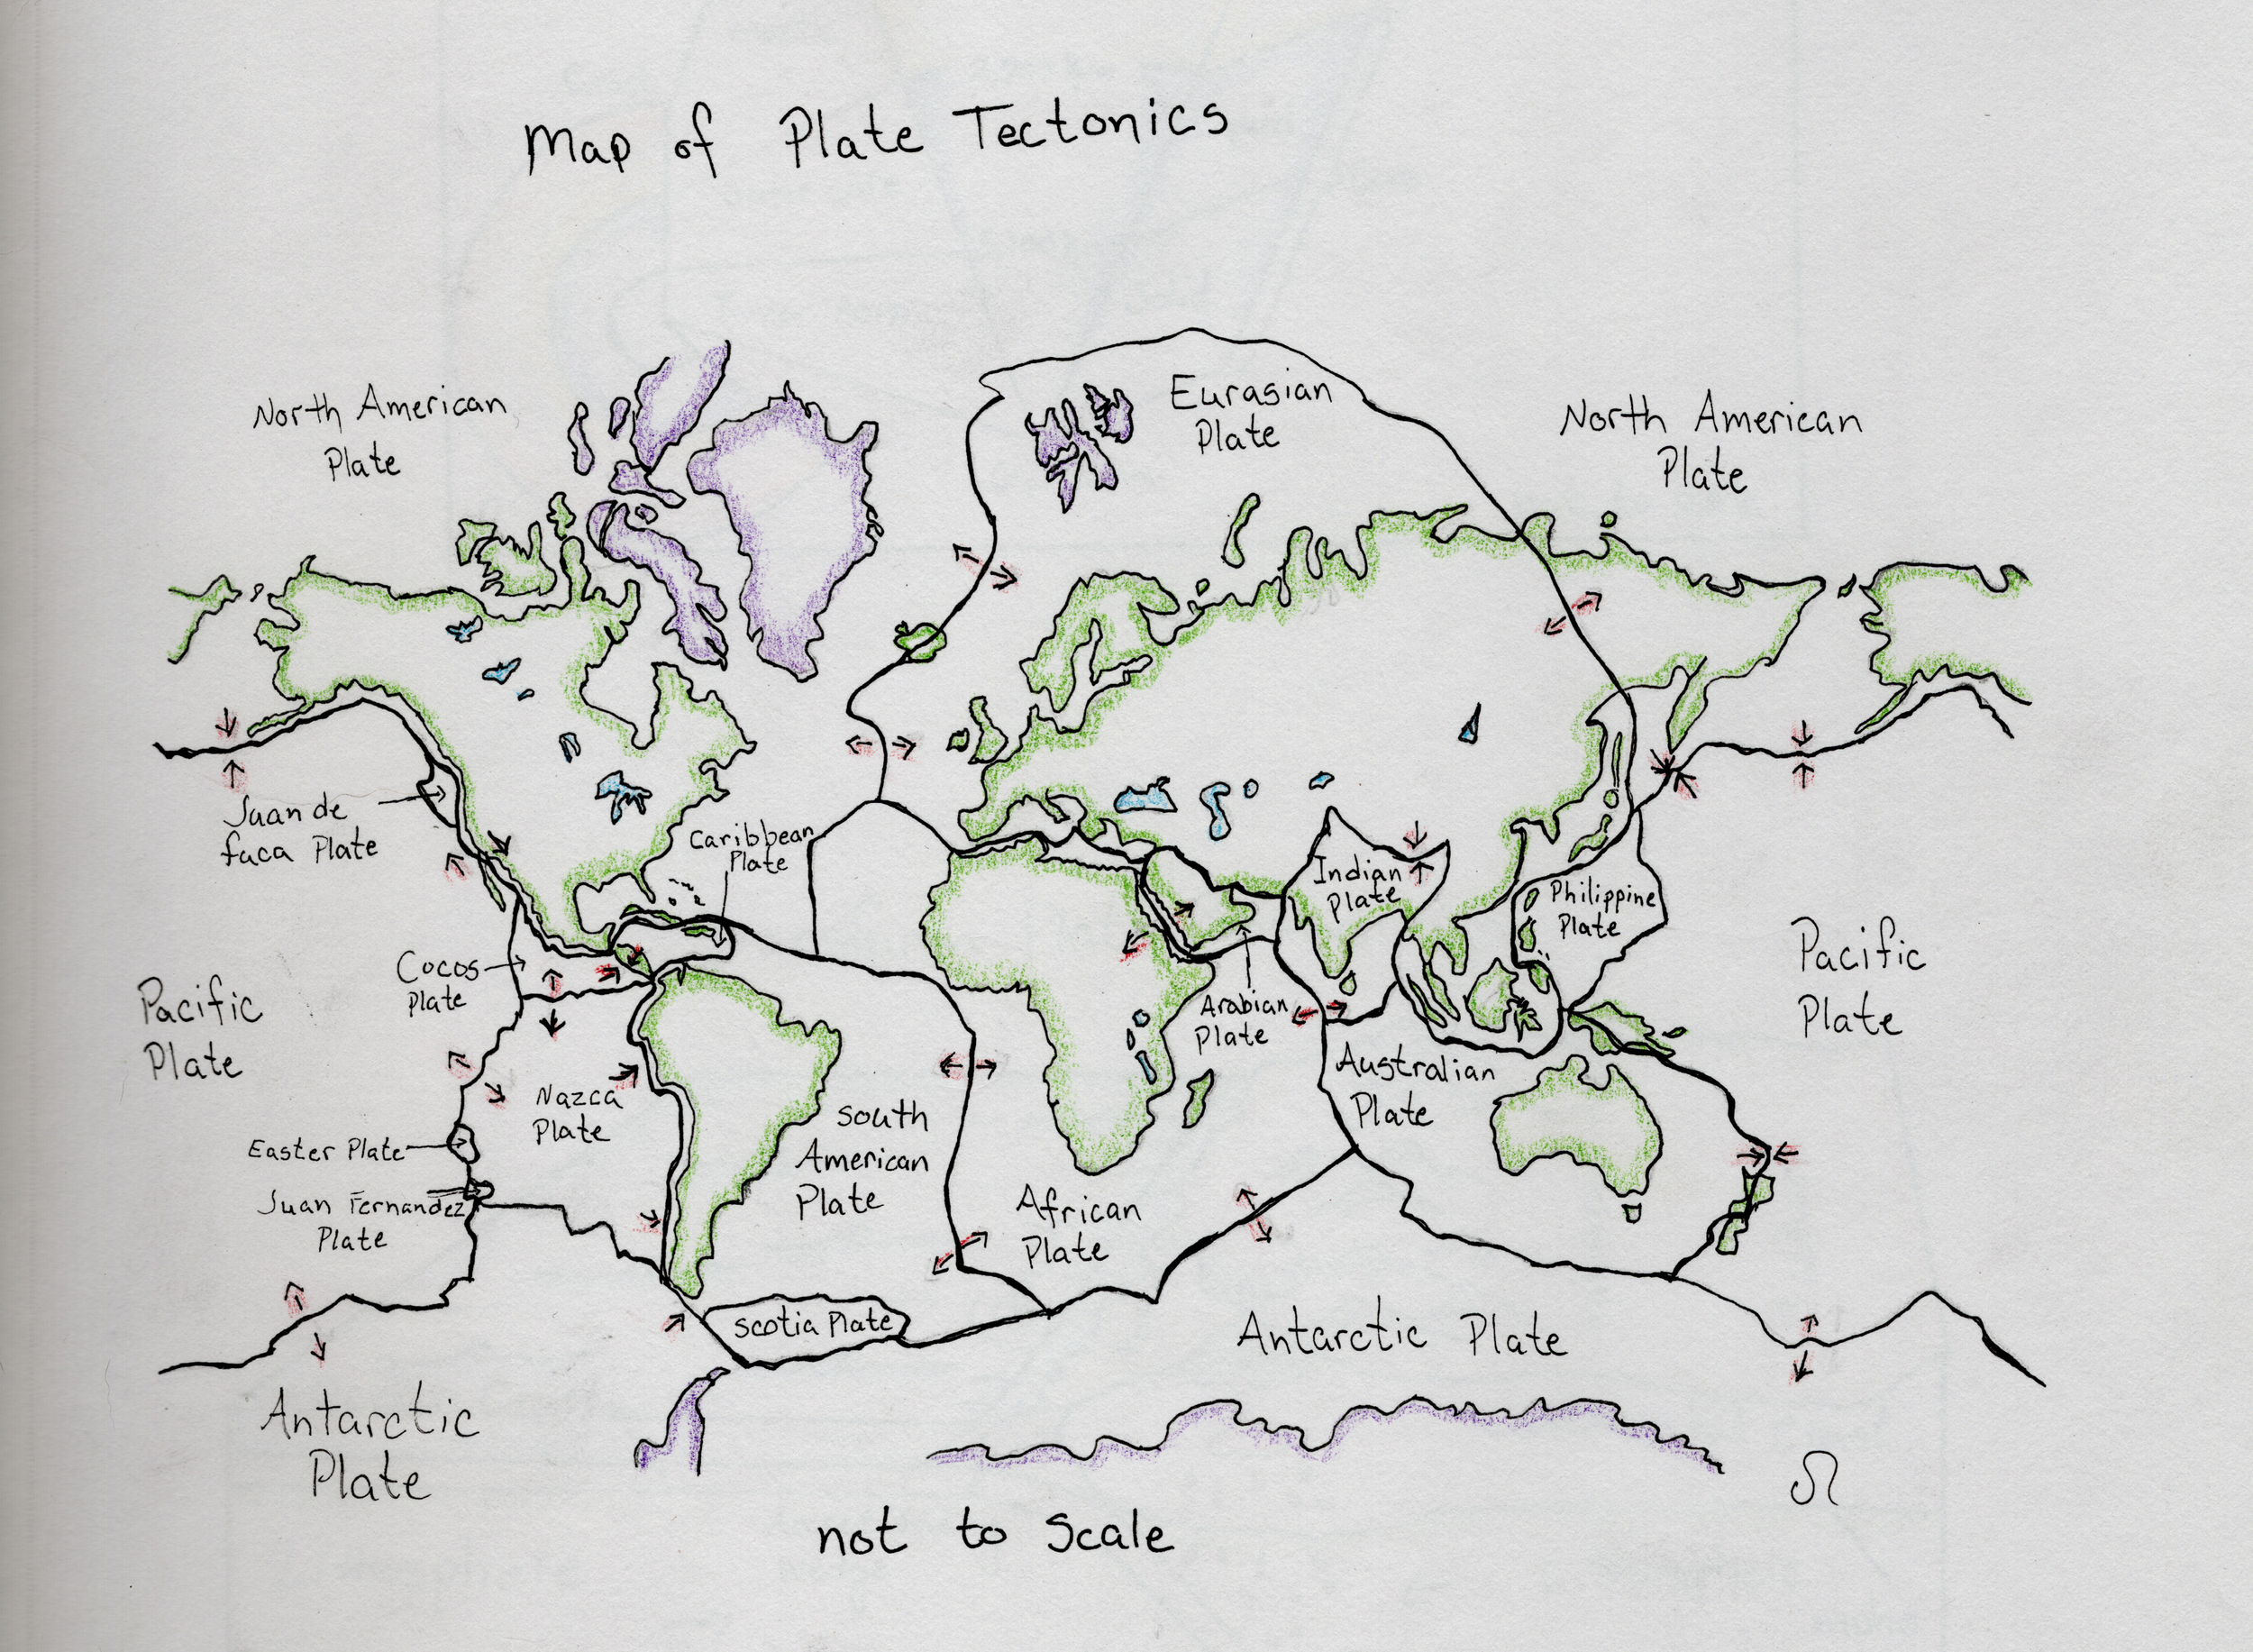 Map of Plate Tectonics
North American
Plate
Eurasian
Plate
North American
Plate
Juan de
fuca Plate
Caribbean
Plate
Indian
Plate
Philippine
Plate
Cocos
Plate
Pacific
Plate
Arabian
Plate
Pacific
Plate
Nazca
Plate
Australian
Plate
South
American
Plate
Easter Plate
Juan Fernandez
Plate
African
Plate
Scotia Plate
Antarctic Plate
Antarctic
Plate
not to Scale